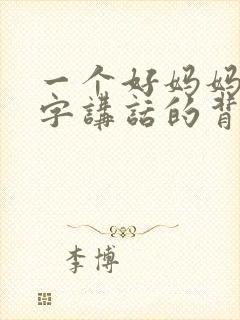 一个好妈妈
字講話的背
李博